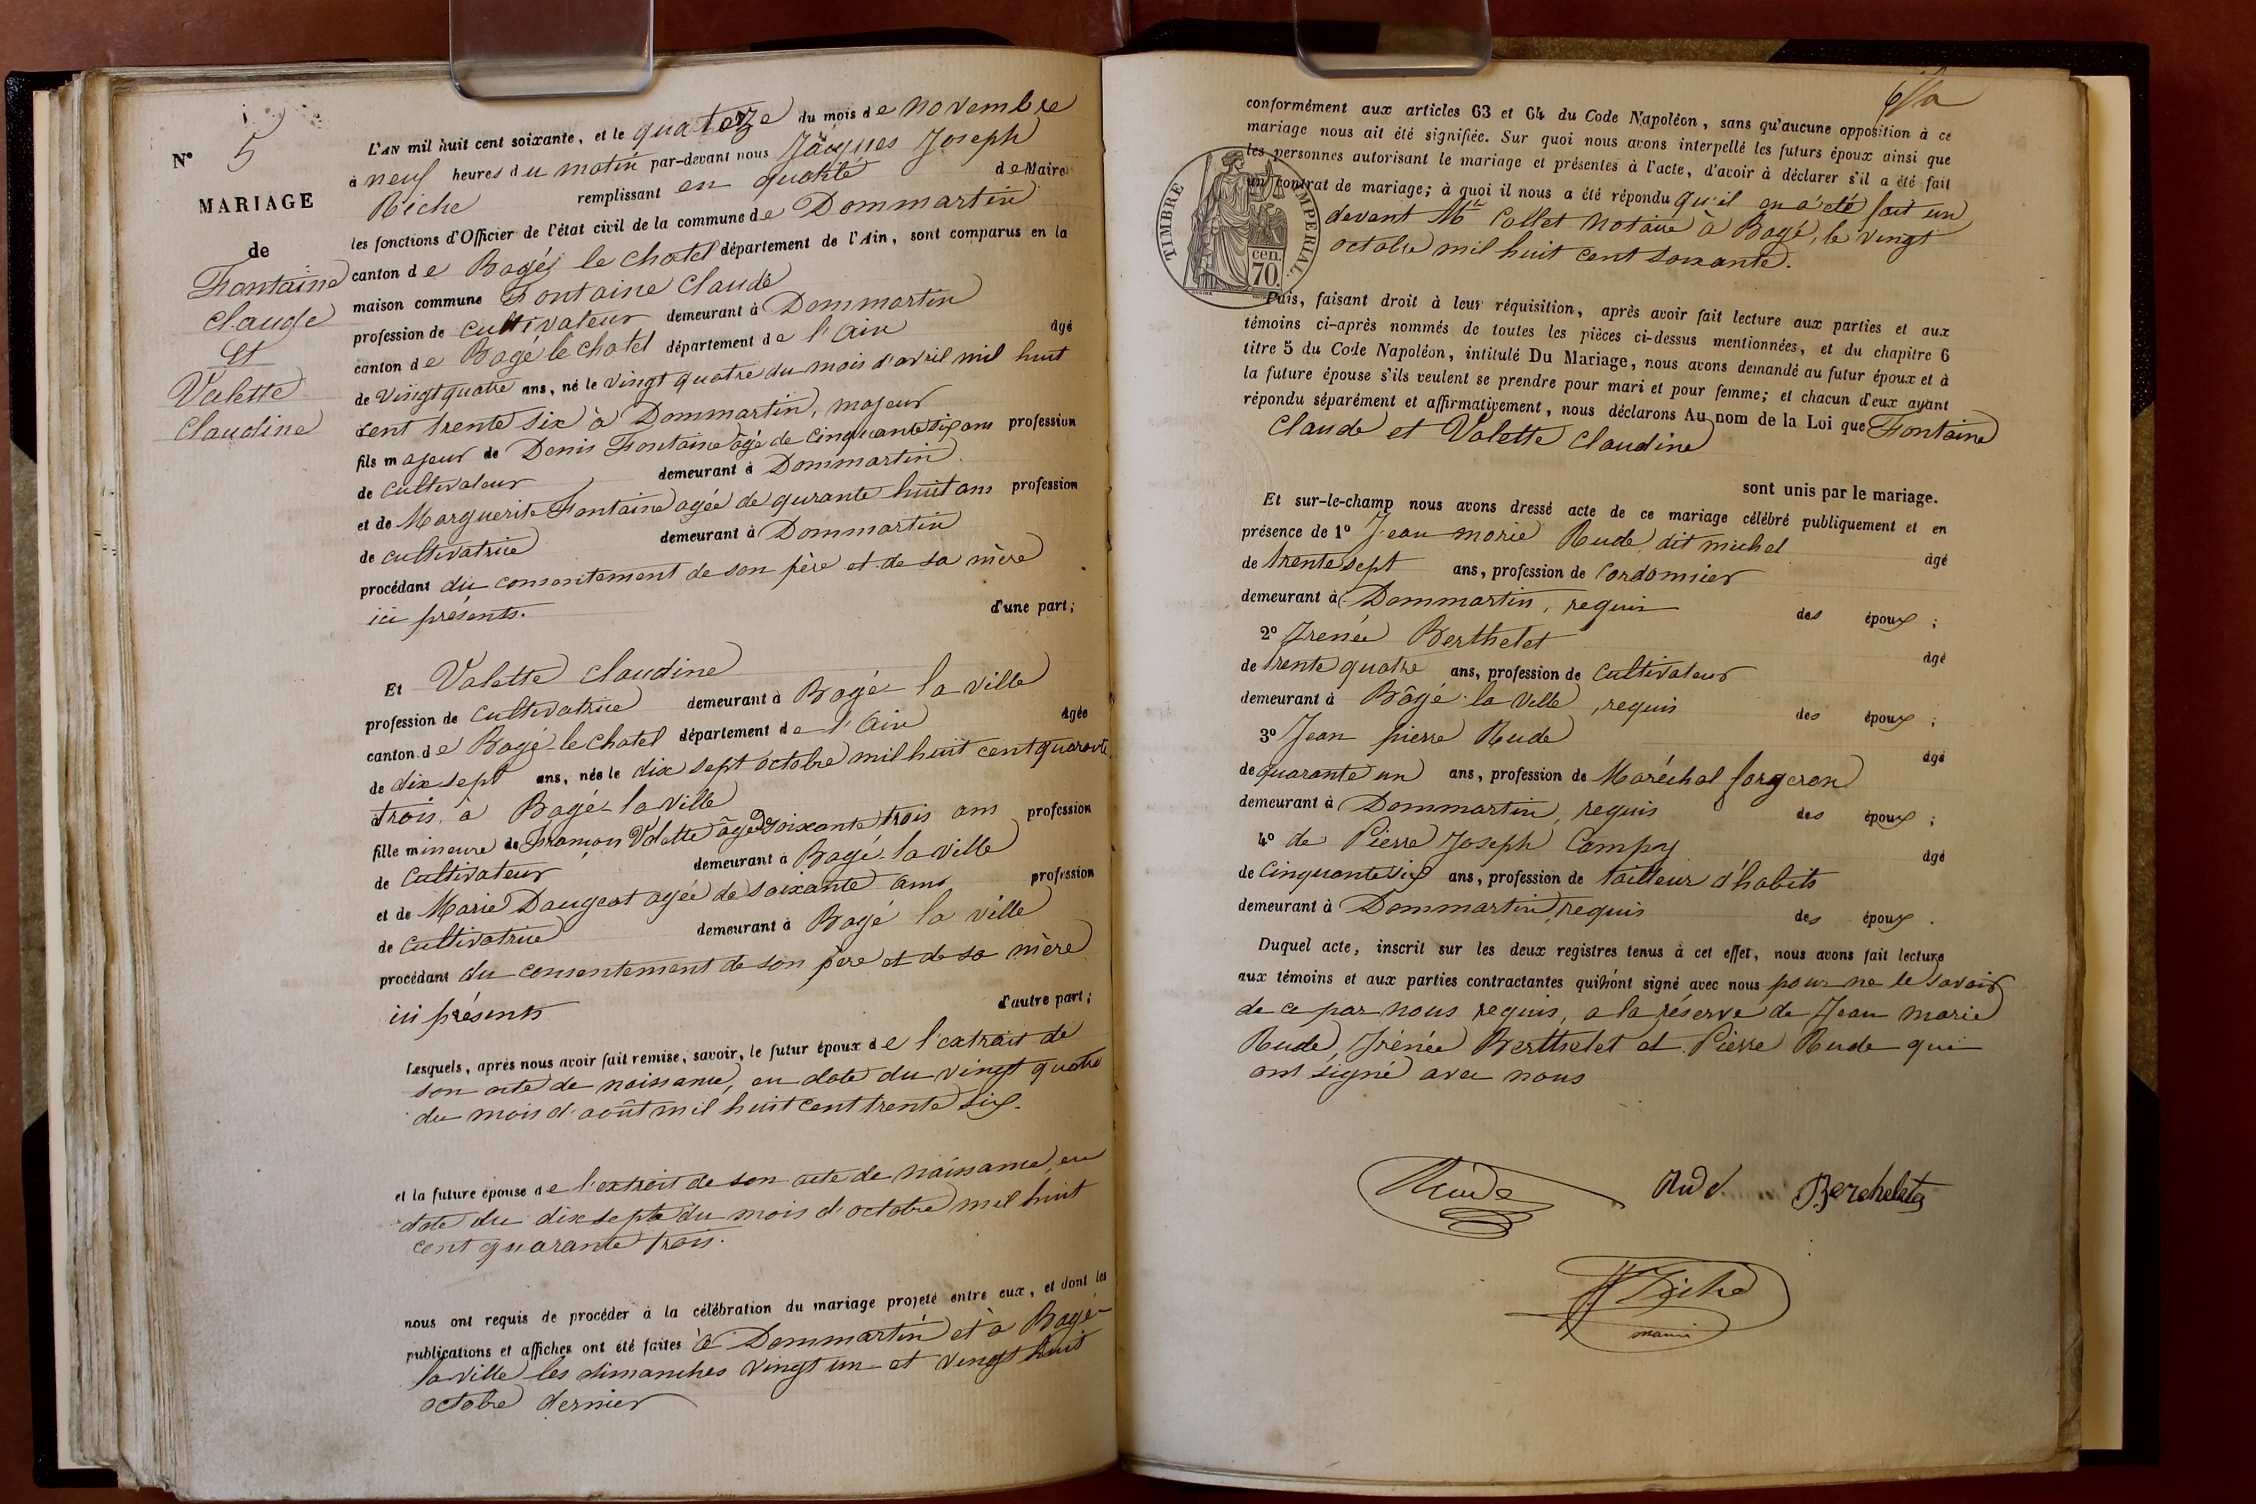 N° 5
MARIAGE
de
Fontaine
Claude
Et
Valette
Claudine
L'AN mil huit cent soixante, et le quatorze du mois de novembre
à neuf heures du matin par-devant nous Jacques Joseph
Riche remplissant en qualité de Maire
les fonctions d'Officier de l'état civil de la commune de Dommartin
canton de Bagé le chatel département de l'Ain, sont comparus en la
maison commune Fontaine Claude
profession de cultivateur demeurant à Dommartin
canton de Bagé le chatel département de l'Ain âgé
de vingt quatre ans, né le vingt quatre du mois d'avril mil huit
cent trente six à Dommartin, majeur
fils majeur de Denis Fontaine âgé de cinquante six ans profession
de cultivateur demeurant à Dommartin
et de Marguerite Fontaine agée de qurante huit ans profession
de cultivatrice demeurant à Dommartin
procédant du consentement de son père et de sa mère
ici présents. d'une part;
Et Valette Claudine
profession de cultivatrice demeurant à Bagé la ville
canton de Bagé le chatel département de l'Ain âgée
de dix sept ans, née le dix sept octobre mil huit cent quarante
trois à Bagé la ville
fille mineure de François Valette âgé de soixante trois ans profession
de cultivateur demeurant à Bagé la ville
et de Marie Daugeat agée de soixante ans profession
de cultivatrice demeurant à Bagé la ville
procédant du consentement de son père et de sa mère
ici présents d'autre part;
Lesquels, après nous avoir fait remise, savoir, le futur époux de l'extrait de
son acte de naissance, en date du vingt quatre
du mois d'août mil huit cent trente six.
et la future épouse de l'extrait de son acte de naissance, en
date du dix sept du mois d'octobre mil huit
cent quarante trois.
nous ont requis de procéder à la célébration du mariage projeté entre eux, et dont les
publications et affiches ont été faites à Dommartin et à Bagé
la ville les dimanches vingt un et vingt huit
octobre dernier
conformément aux articles 63 et 64 du Code Napoléon, sans qu'aucune opposition à ce
mariage nous ait été signifiée. Sur quoi nous avons interpellé les futurs époux ainsi que
les personnes autorisant le mariage et présentes à l'acte, d'avoir à déclarer s'il a été fait
un contrat de mariage; à quoi il nous a été répondu qu'il en a été fait un
devant Me Collet Notaire à Bagé, le vingt
octobre mil huit cent soixante.
TIMBRE IMPERIAL
cen.
70.
Puis, faisant droit à leur réquisition, après avoir fait lecture aux parties et aux
témoins ci-après nommés de toutes les pièces ci-dessus mentionnées, et du chapitre 6
titre 5 du Code Napoléon, intitulé Du Mariage, nous avons demandé au futur époux et à
la future épouse s'ils veulent se prendre pour mari et pour femme; et chacun d'eux ayant
répondu séparément et affirmativement, nous déclarons Au nom de la Loi que Fontaine
Claude et Valette Claudine
sont unis par le mariage.
Et sur-le-champ nous avons dressé acte de ce mariage célébré publiquement et en
présence de 1° Jean marie Rude dit michel âgé
de trente sept ans, profession de Cordonnier
demeurant à Dommartin, requis des époux;
2° Irénée Berthelet âgé
de trente quatre ans, profession de Cultivateur
demeurant à Bâgé la Ville, requis des époux;
3° Jean pierre Rude âgé
de quarante un ans, profession de Maréchal forgeron
demeurant à Dommartin, requis des époux;
4° de Pierre Joseph Campy âgé
de Cinquante six ans, profession de tailleur d'habits
demeurant à Dommartin, requis des époux.
Duquel acte, inscrit sur les deux registres tenus à cet effet, nous avons fait lecture
aux témoins et aux parties contractantes qui n'ont signé avec nous pour ne le savoir
de ce par nous requis, a la réserve de Jean marie
Rude, Irénée Berthelet et Pierre Rude qui
ont signé avec nous
Rude Rude Berthelet
Riche
maire